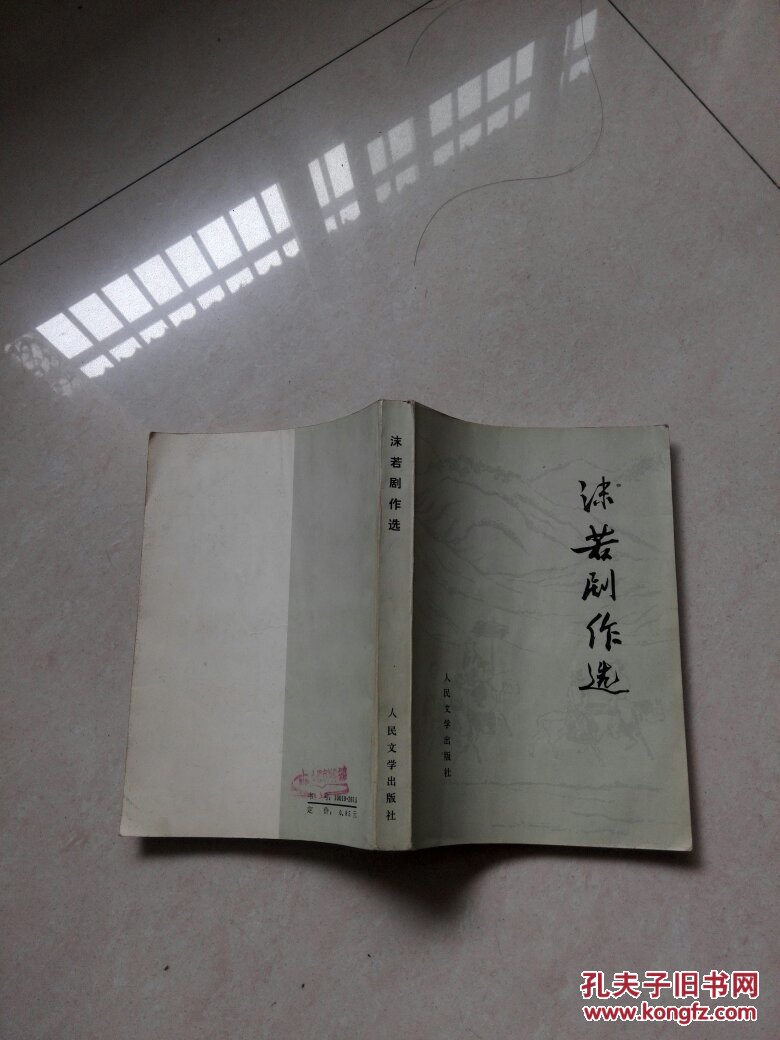 沫若剧作选
人民文学出版社
沫若剧作选
人民文学出版社
定 价: 0.85元
孔夫子旧书网
www.kongfz.com